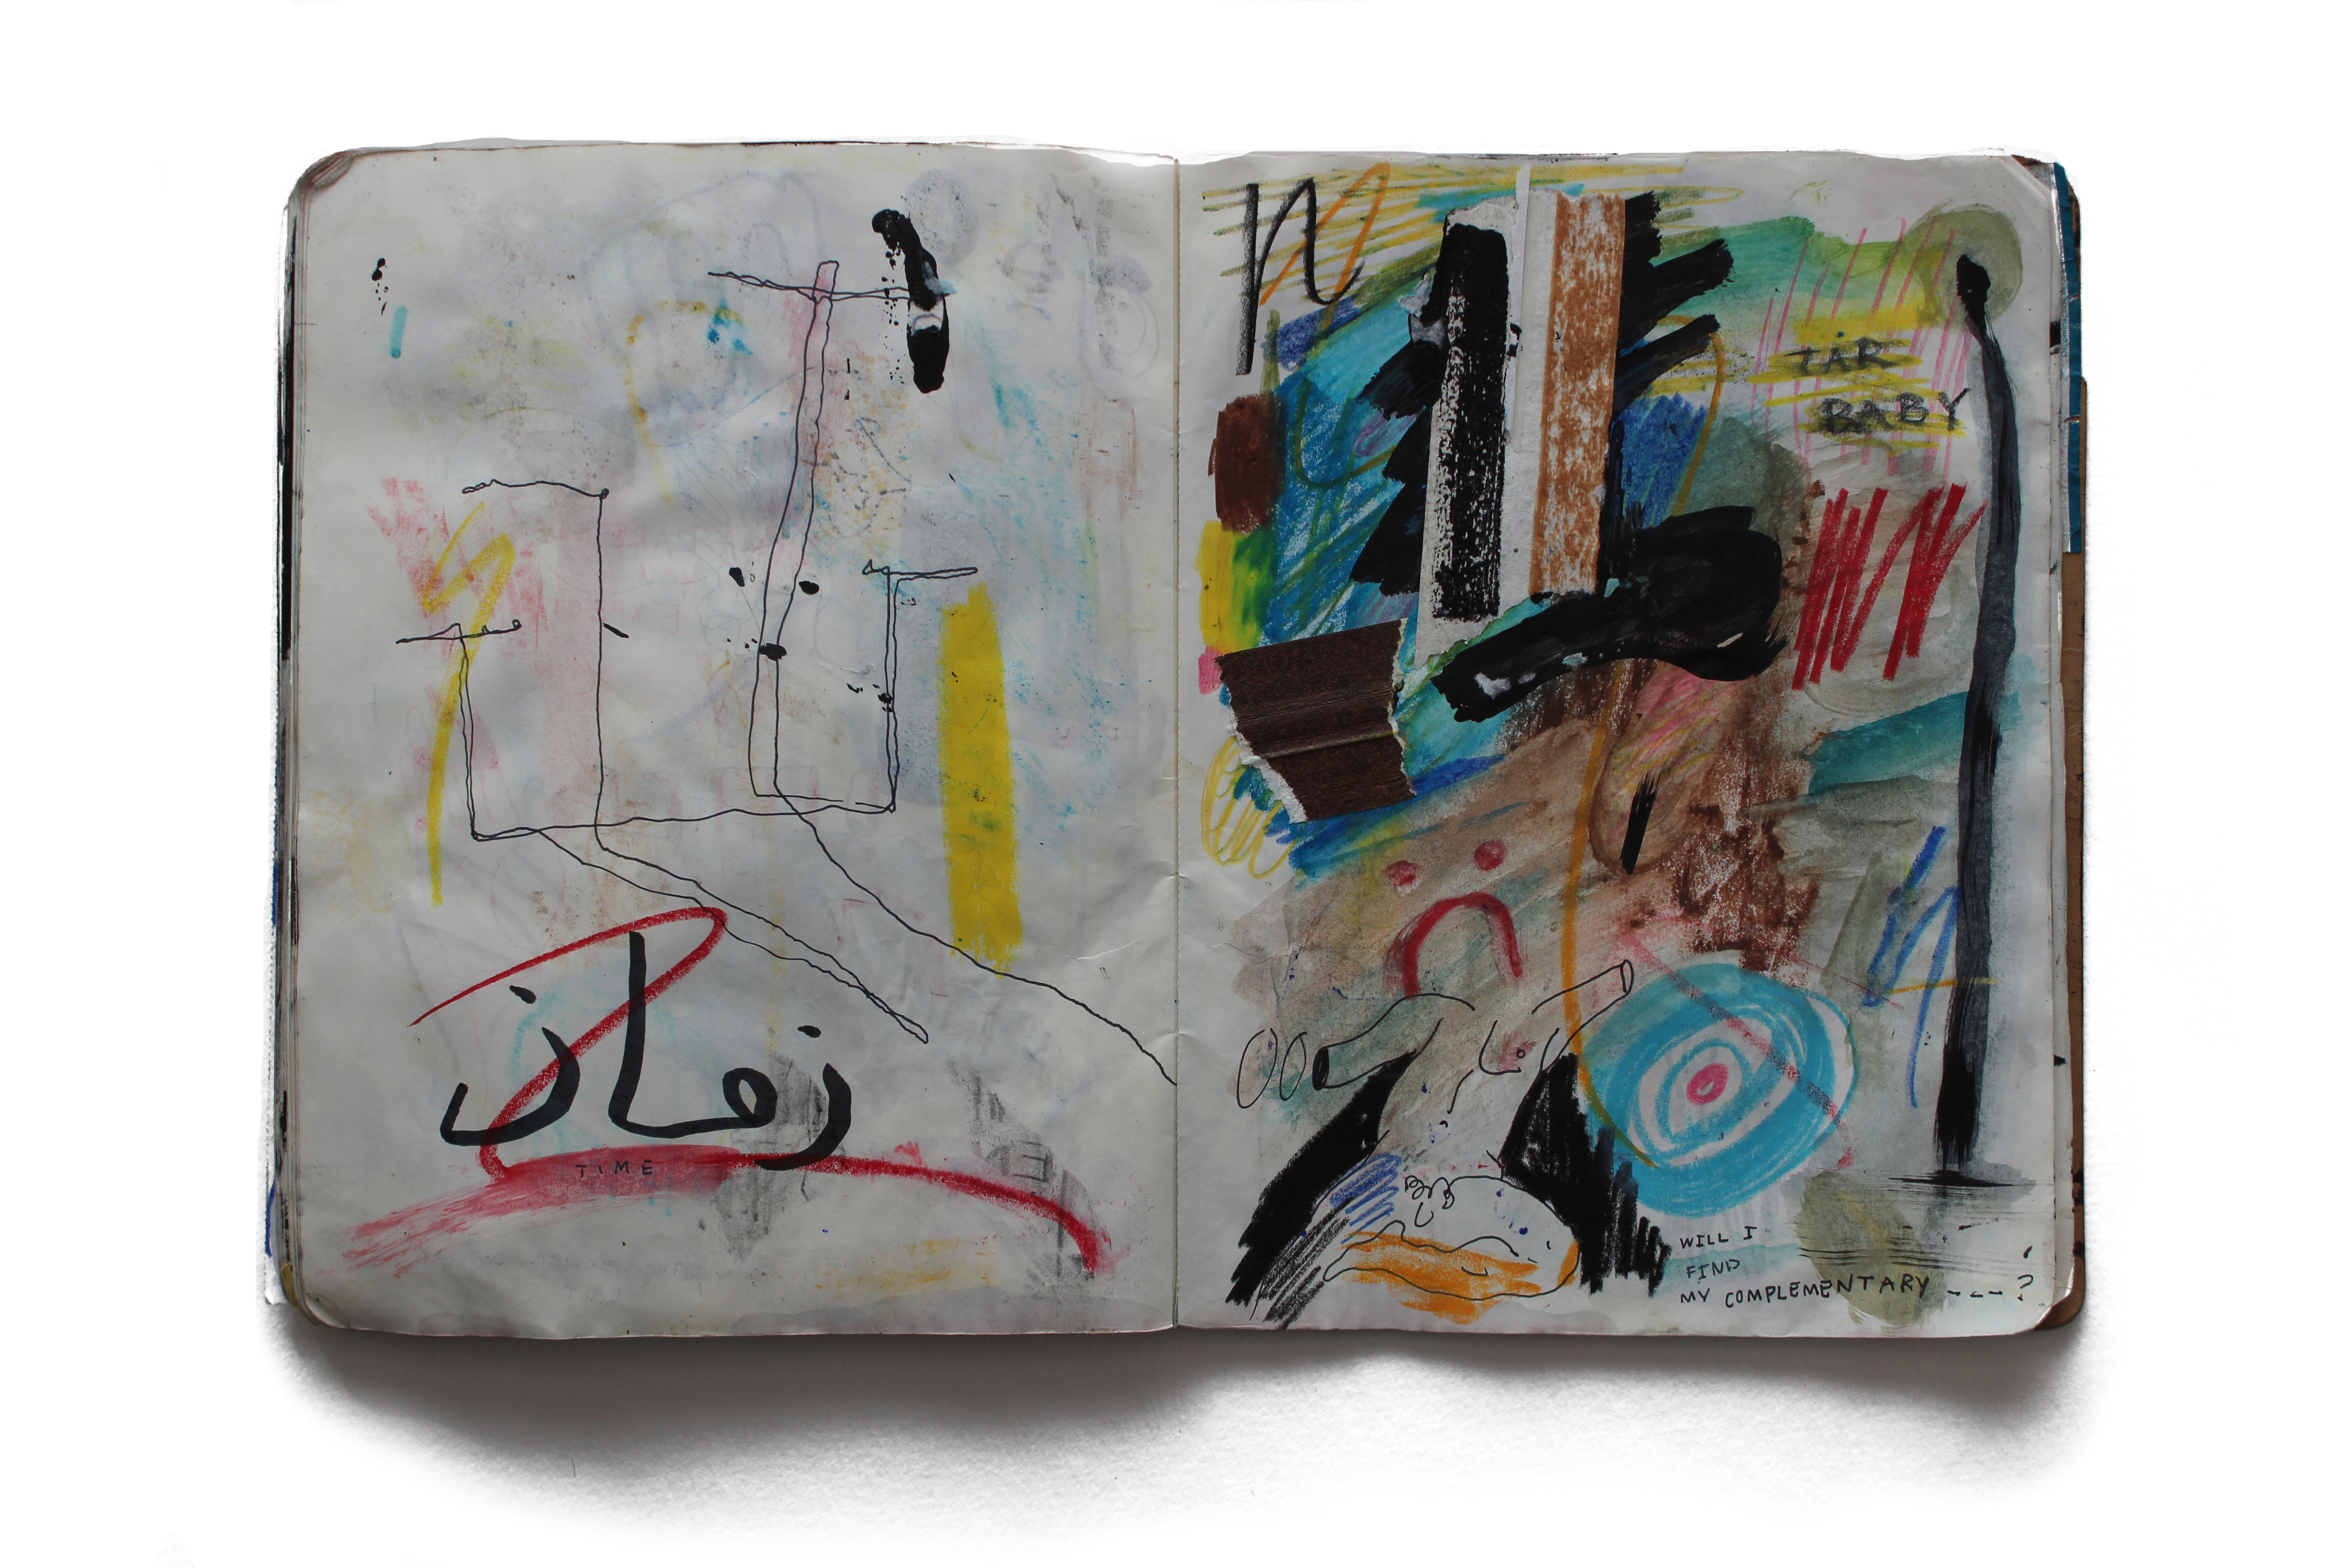 زمان
TIME
TAR
BABY
WILL I
FIND
MY COMPLEMENTARY ---?